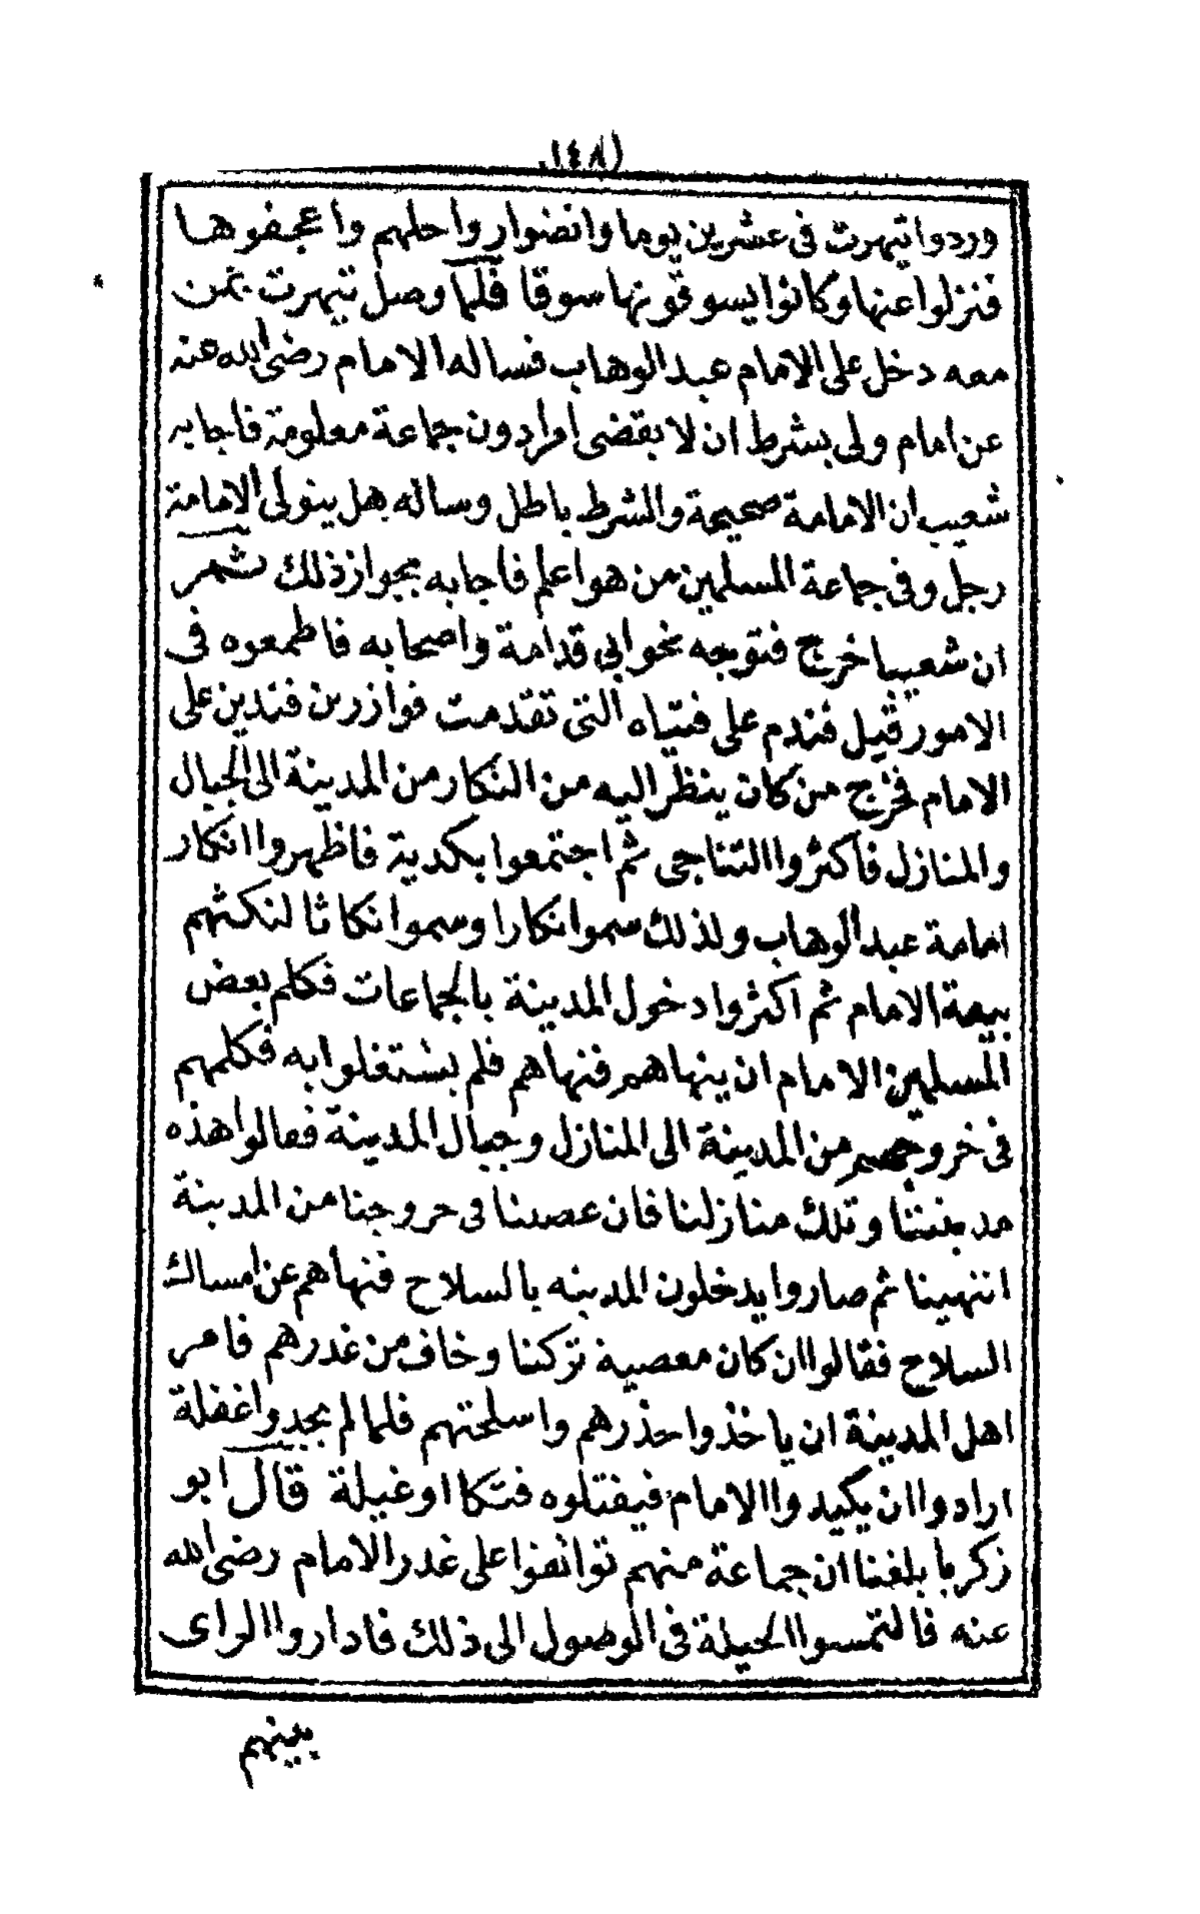 (١٤٨)
وردوا تيهرت فى عشرين يوما وانضوا رواحلهم واعجفوها
فنزلوا عنها وكانوا يسوقونها سوقا فلما وصل تيهرت بمن
معه دخل على الامام عبد الوهاب فساله الامام رضى الله عنه
عن امام ولى بشرط ان لا يقضى امرا دون جماعة معلومة فاجابه
شعيب ان الامامة صحيحة والشرط باطل وساله هل يتولى الامامة
رجل وفى جماعة المسلمين من هو اعلم فاجابه بجواز ذلك ثم
ان شعيبا خرج فتوجه نحو ابى قدامة واصحابه فاطمعوه فى
الامور قيل فندم على فتياه التى تقدمت فوازر بن فندين على
الامام فخرج من كان ينظر اليه من النكار من المدينة الى الجبال
والمنازل فاكثروا التناجى ثم اجتمعوا بكدية فاظهروا انكار
امامة عبد الوهاب ولذلك سموا نكارا وسموا نكاثا لنكثهم
بيعة الامام ثم اكثروا دخول المدينة بالجماعات فكلم بعض
المسلمين الامام ان ينهاهم فنهاهم فلم يشتغلوا به فكلمهم
فى خروجهم من المدينة الى المنازل وجبال المدينة فقالوا هذه
مدينتنا وتلك منازلنا فان عصينا فى خروجنا من المدينة
انتهينا ثم صاروا يدخلون المدينه بالسلاح فنهاهم عن امساك
السلاح فقالوا ان كان معصية تركنا وخاف من غدرهم فامر
اهل المدينة ان ياخذوا حذرهم واسلحتهم فلما لم يجدوا غفلة
ارادوا ان يكيدوا الامام فيقتلوه فتكا او غيلة قال ابو
زكريا بلغنا ان جماعة منهم تواثقوا على غدر الامام رضى الله
عنه فالتمسوا الحيلة فى الوصول الى ذلك فاداروا الراى
بينهم